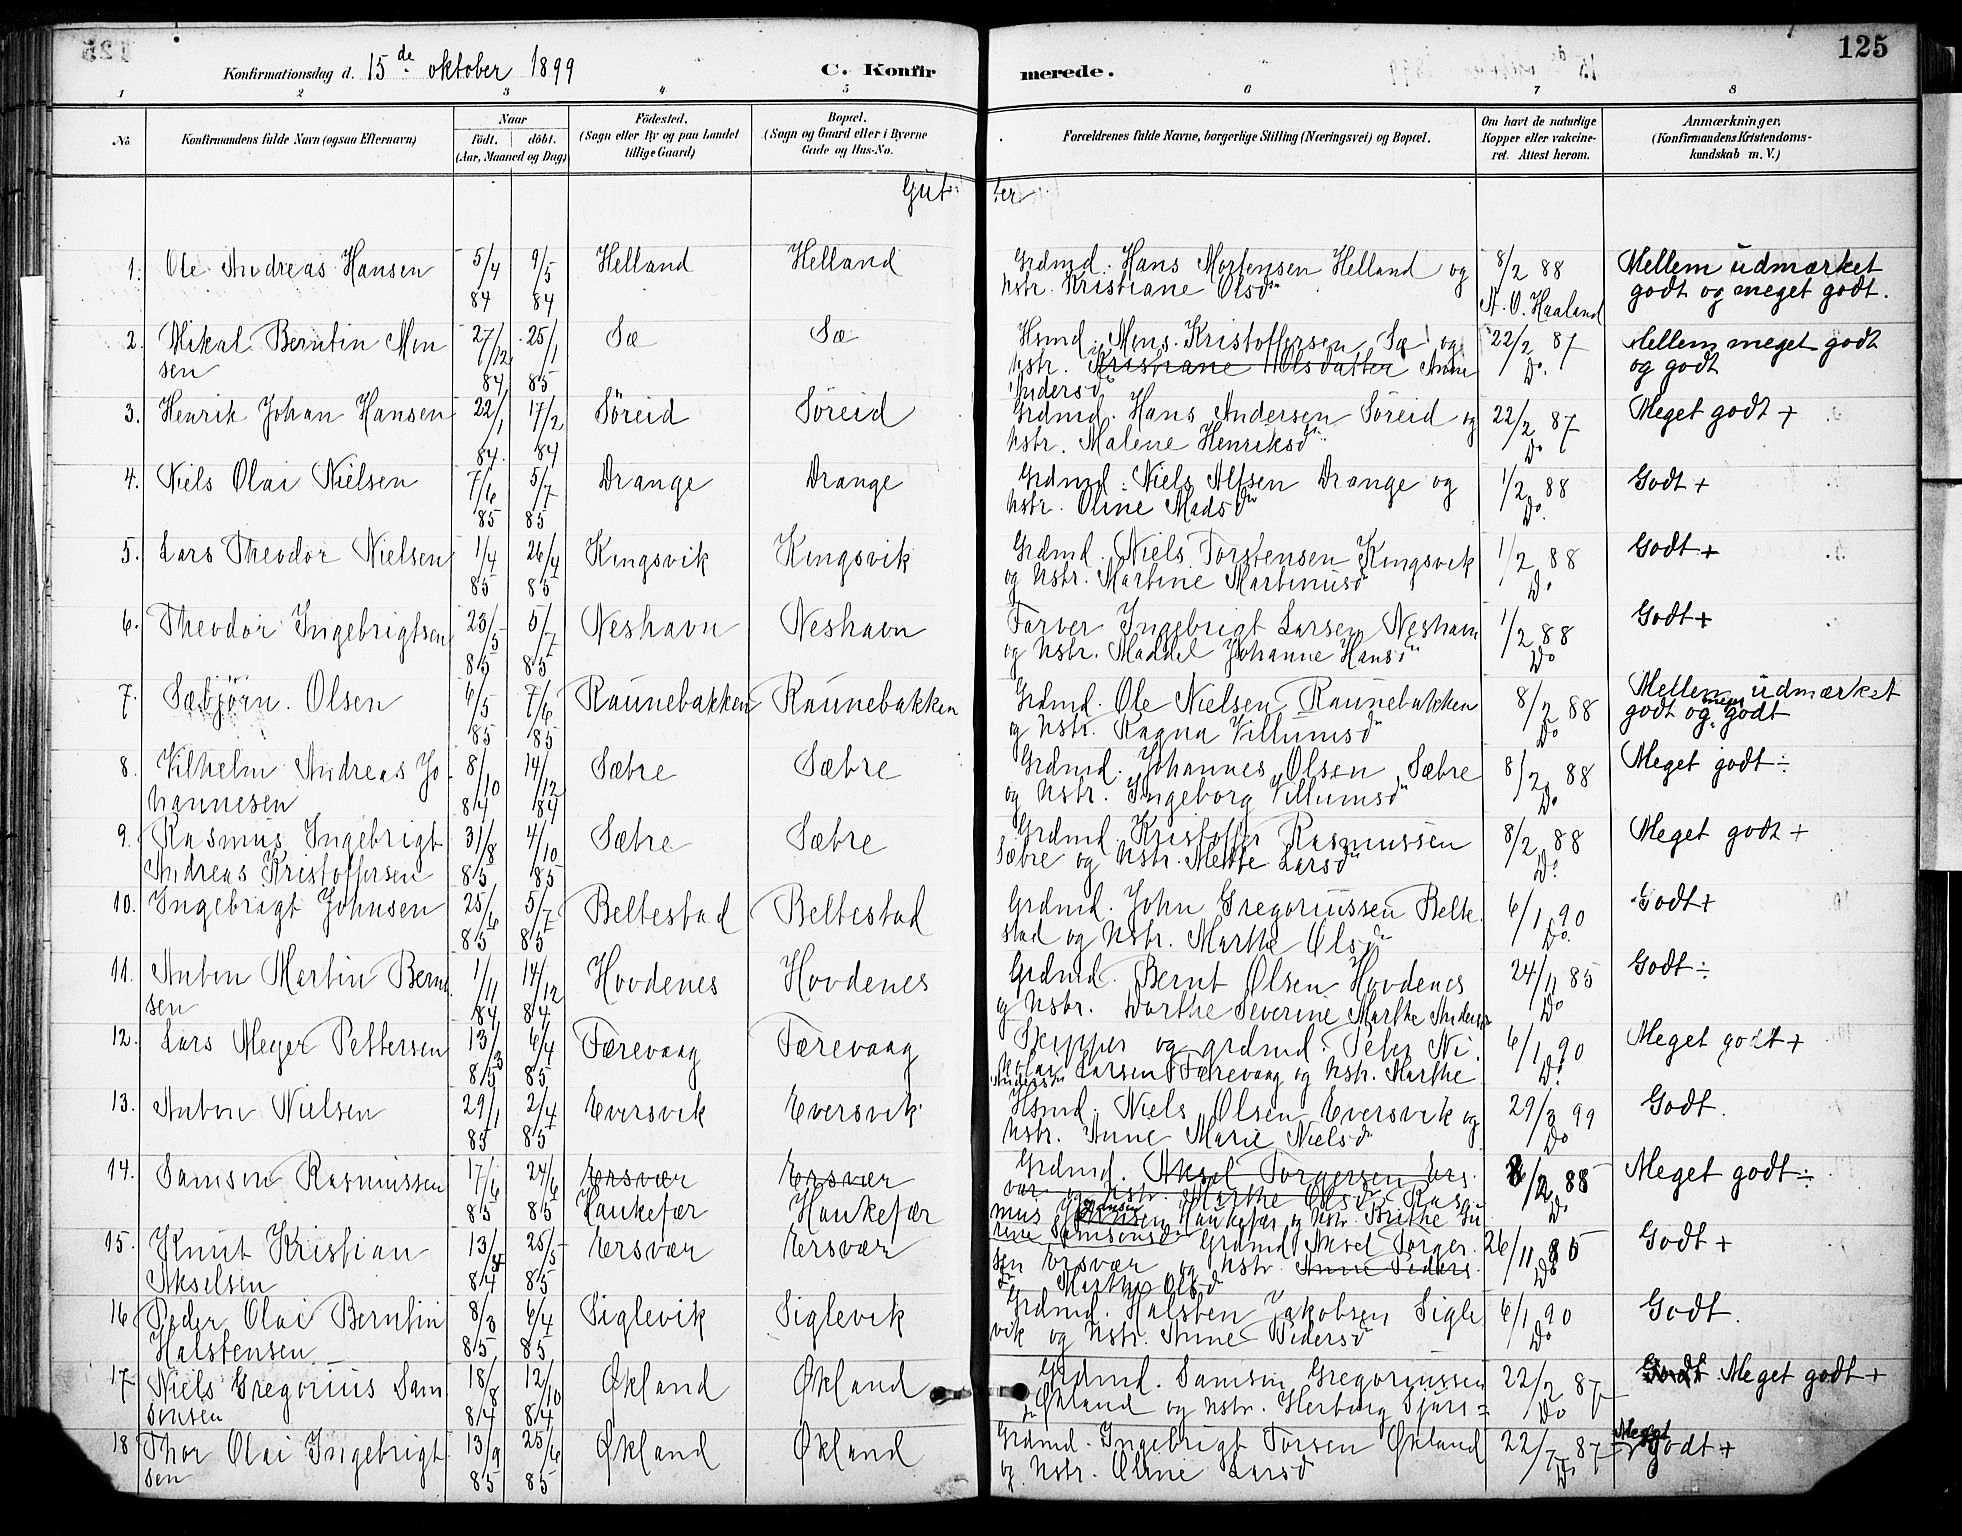 Konfirmationsdag d. 15de oktober 1899 C. Konfirmerede. 125
1 2 3 4 5 6 7 8
No. Konfirmandens fulde Navn (ogsaa Efternavn) Naar født. døbt. (Aar, Maaned og Dag) Fødested. (Sogn eller By og paa Landet tillige Gaard) Bopæl. (Sogn og Gaard eller i Byerne Gade og Hus-No. Forældrenes fulde Navne, borgerlige Stilling (Næringsvei) og Bopæl. Om havt de naturlige Kopper eller vakcineret. Attest herom. Anmærkninger. (Konfirmandens Kristendomskundskab m. V.)
Gutter
1. Ole Andreas Hansen 5/4 84 9/5 84 Helland Helland Grdmd. Hans Mortensen Helland og
hstr. Kristiane Olsdr 8/2 88 A. O. Haaland Mellem udmærket godt og meget godt.
2. Mikal Berntin Monsen 27/12 84 25/1 85 Sæ Sæ Hsmd. Mons Kristoffersen Sæ og
hstr. Kristiane Olsdatter Anne Andersdr 22/2 87 Do. Mellem meget godt og godt
3. Henrik Johan Hansen 22/1 84 17/2 84 Søreid Søreid Grdmd. Hans Andersen Søreid og
hstr. Malene Henriksdr 22/2 87 Do Meget godt +
4. Niels Olai Nielsen 7/6 85 5/7 85 Drange Drange Grdmd. Niels Alfsen Drange og
hstr. Oline Madsdr 1/2 88 Do. Godt +
5. Lars Theodor Nielsen 1/4 85 26/4 85 Kingsvik Kingsvik Grdmd. Niels Torstensen Kingsvik
og hstr. Martine Martinusdr 1/2 88 Do Godt +
6. Theodor Ingebrigtsen 23/5 85 5/7 85 Neshavn Neshavn Farver Ingebrigt Larsen Neshavn
og hstr. Maddel Johanne Hansdr 1/2 88 Do Godt +
7. Sæbjørn Olsen 6/5 85 7/6 85 Raunebakken Raunebakken Grdmd. Ole Nielsen Raunebakken
og hstr. Ragna Villumsdr 8/2 88 Do Mellem udmærket godt og meget godt
8. Vilhelm Andreas Johannesen 8/10 84 14/12 84 Sætre Sætre Grdmd. Johannes Olsen Sætre
og hstr. Ingeborg Villumsdr 8/2 88 Do Meget godt ÷
9. Rasmus Ingebrigt Andreas Kristoffersen 31/8 85 4/10 85 Sætre Sætre Grdmd. Kristoffer Rasmussen
Sætre og hstr. Mette Larsdr 8/2 88 Do. Meget godt +
10. Ingebrigt Johnsen 25/6 85 5/7 85 Beltestad Beltestad Grdmd. John Gregoriussen Beltestad
og hstr. Marthe Olsdr 6/1 90 Do. Godt +
11. Anton Martin Berntsen 1/11 84 14/12 84 Hovdenes Hovdenes Grdmd. Bernt Olsen Hovdenes
og hstr. Dorthe Severine Marthe Andersdr 24/11 85 Do Godt ÷
12. Lars Meyer Pettersen 13/3 85 6/4 85 Færevaag Færevaag Skipper og grdmd. Peter Nikolai
Larsen Færevaag og hstr. Marthe Andersdr 6/1 90 Do. Meget godt +
13. Anton Nielsen 29/1 85 2/4 85 Eversvik Eversvik Hsmd. Niels Olsen Eversvik og
hstr. Anne Marie Nielsdr 29/3 99 Do Godt.
14. Samson Rasmussen 17/6 85 24/6 85 Ersvær Haukefær Ersvær Haukefær Grdmd. Aksel Torgersen Ersvær
og hstr. Marthe Olsdr Rasmus Hansen Haukefær og hstr. Brithe Gurine Samsonsdr 8/2 88 Do Meget godt ÷
15. Knut Kristian Akselsen 13/4 84 25/5 85 Ersvær Ersvær Grdmd. Aksel Torgersen
Ersvær og hstr. Anne Pedersdr Marthe Olsdr 26/11 85 Do Godt +
16 Peder Olai Berntin Halstensen 8/3 85 6/4 85 Siglevik Siglevik Grdmd. Halsten Jakobsen Siglevik
og hstr. Anne Pedersdr 6/1 90 Do Godt.
17 Niels Gregorius Samsonsen 18/8 84 12/10 84 Økland Økland Grdmd. Samson Gregoriussen
Økland og hstr. Herborg Sjursdr 22/2 87 Do Godt Meget godt +
18 Thor Olai Ingebrigtsen 13/9 85 25/6 85 Økland Økland Grdmd. Ingebrigt Torsen Økland
og hstr. Oline Larsdr 22/7 87 Do Meget Godt +